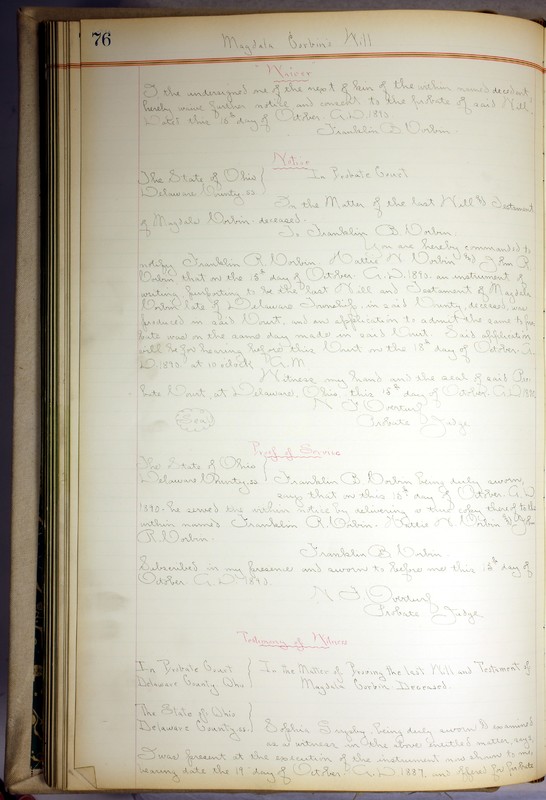 76
Magdala Corbin's Will
Waiver
I the undersigned one of the next of kin of the within named decedent
hereby waive further notice and consent to the probate of said Will
Dated this 18th day of October A.D. 1890
Franklin B Corbin.
Notice
The State of Ohio
Delaware County ss.
In Probate Court
In the Matter of the last Will & Testament
of Magdala Corbin deceased.
To Franklin B. Corbin.
You are hereby commanded to
notify Franklin R. Corbin. Hattie N Corbin & John R
Corbin that on the 18th day of October A.D. 1890. an instrument of
writing, purporting to be the last Will and Testament of Magdala
Corbin late of Delaware Township, in said County, deceased, was
produced in said Court, and an application to admit the same to pro
bate was on the same day made in said Court. Said application
will be for hearing before this Court on the 18th day of October A
D. 1890. at 10 o'clock A.M.
Witness my hand and the seal of said Pro
bate Court, at Delaware, Ohio, this 18th day of October A.D. 1890
N F Overturf
Probate Judge
Seal
Proof of Service
The State of Ohio
Delaware County ss
Franklin B Corbin being duly sworn,
says that on this 18th day of October A.D
1890. he served the within notice by delivering a true copy thereof to the
within named Franklin R. Corbin. Hattie N Corbin & John
R. Corbin.
Franklin B Corbin
Subscribed in my presence and sworn to before me this 18th day of
October A.D. 1890.
N F Overturf
Probate Judge
Testimony of Witness
In Probate Court
Delaware County Ohio
In the Matter of Proving the last Will and Testament of
Magdala Corbin Deceased
The State of Ohio
Delaware County ss.
Sophia being duly sworn & examined
as a witness in the above entitled matter, says
I was present at the execution of the instrument now shown to me,
bearing date the 19th day of October A.D. 1887, and offered for probate